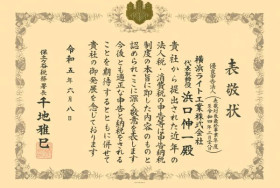 表敬状
優良申告法人
横浜ライト工業株式会社
代表取締役 浜口伸一殿
貴社から提出された近年の
法人税・消費税の申告等は申告納税
制度の本旨に即した内容のものと
認められここに深く敬意を表します
今後とも適正な申告と納税をされる
ことを期待するとともに併せて
貴社の御発展を念じております
令和五年六月八日
保土ケ谷税務署長
千地雅巳